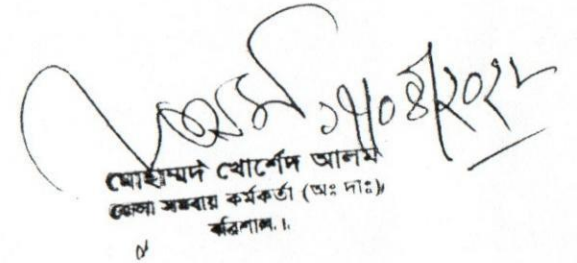 ১৭/০৪/২০২২
মোহাম্মদ খোর্শেদ আলম
জেলা সমবায় কর্মকর্তা (অঃ দাঃ)
বরিশাল।